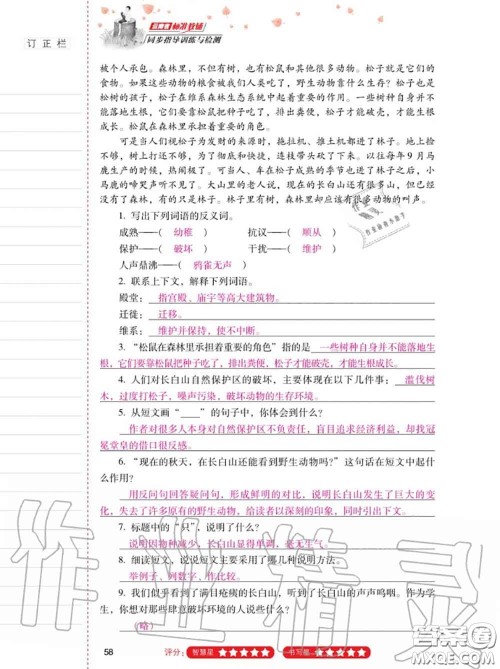 订正栏
云南省标准教辅
同步指导训练与检测
被个人承包。森林里,不但有树,也有松鼠和其他很多动物。松子就是它们的
食物。如果这些动物的粮食被我们人类吃了,野生动物靠什么生存?松子也是
松树的孩子,松子在维系森林生态系统中起着重要的作用。一些树种自身并不
能落地生根,它们是要靠松鼠把种子吃了,排出粪便,松子才能破壳,才能生根
成长。松鼠在森林里承担着重要的角色。
可是当人们视松子为发财的来源时,拖拉机、推土机都进了林子。地上捡
不够,树上打还不够,为了彻底和快捷,连枝带头砍了下来。以往每年9月马
鹿生产的时候,热闹极了。可当人、车在松子成熟的季节也进了林子之后,小
马鹿的啼哭声听不见了。大山里的老人说,现在的长白山还有很多山,但已经
没有了森林,有的只是树。林子里有树,森林里却应该有很多动物的叫声。
1. 写出下列词语的反义词。
成熟——( 幼稚 ) 抗议——( 顺从 )
保护——( 破坏 ) 干扰——( 维护 )
人声鼎沸——( 鸦雀无声 )
2. 联系上下文,解释下列词语。
殿堂: 指宫殿、庙宇等高大建筑物。
迁徙: 迁移。
维系: 维护并保持,使不中断。
3. “松鼠在森林里承担着重要的角色”指的是 一些树种自身并不能落地生
根,它们要靠松鼠把种子吃了,排出粪便,松子才能破壳,才能生根成长。
4. 人们对长白山自然保护区的破坏,主要体现在以下几件事: 滥伐树
木,过度打松子,噪声污染,破坏动物的生存环境。
5. 从短文画“____”的句子中,你体会到什么?
作者对很多人本身对自然保护区不负责任,盲目追求经济利益,却找了冠
冕堂皇的借口很反感。
6. “现在的秋天,在长白山还能看到野生动物吗?”这句话在短文中起什
么作用?
用反问句回答疑问句,形成鲜明的对比,说明长白山发生了巨大的变
化,失去了许多原有的野生动物,给读者以深刻的印象,同时引出下文。
7. 标题中的“只”,说明了什么?
说明因物种减少,长白山显得单调,毫无生气。
8. 细读短文,说说短文主要采用了哪几种说明方法。
举例子、列数字、作比较。
9. 我们似乎看到了满目疮痍的长白山,听到了长白山的声声咆哮。作为学
生,你想对那些肆意破坏环境的人说些什么?
(略)
58 评分: 智慧星 ★★★★★ 书写星 ★★★★★
作业精灵
答案圈